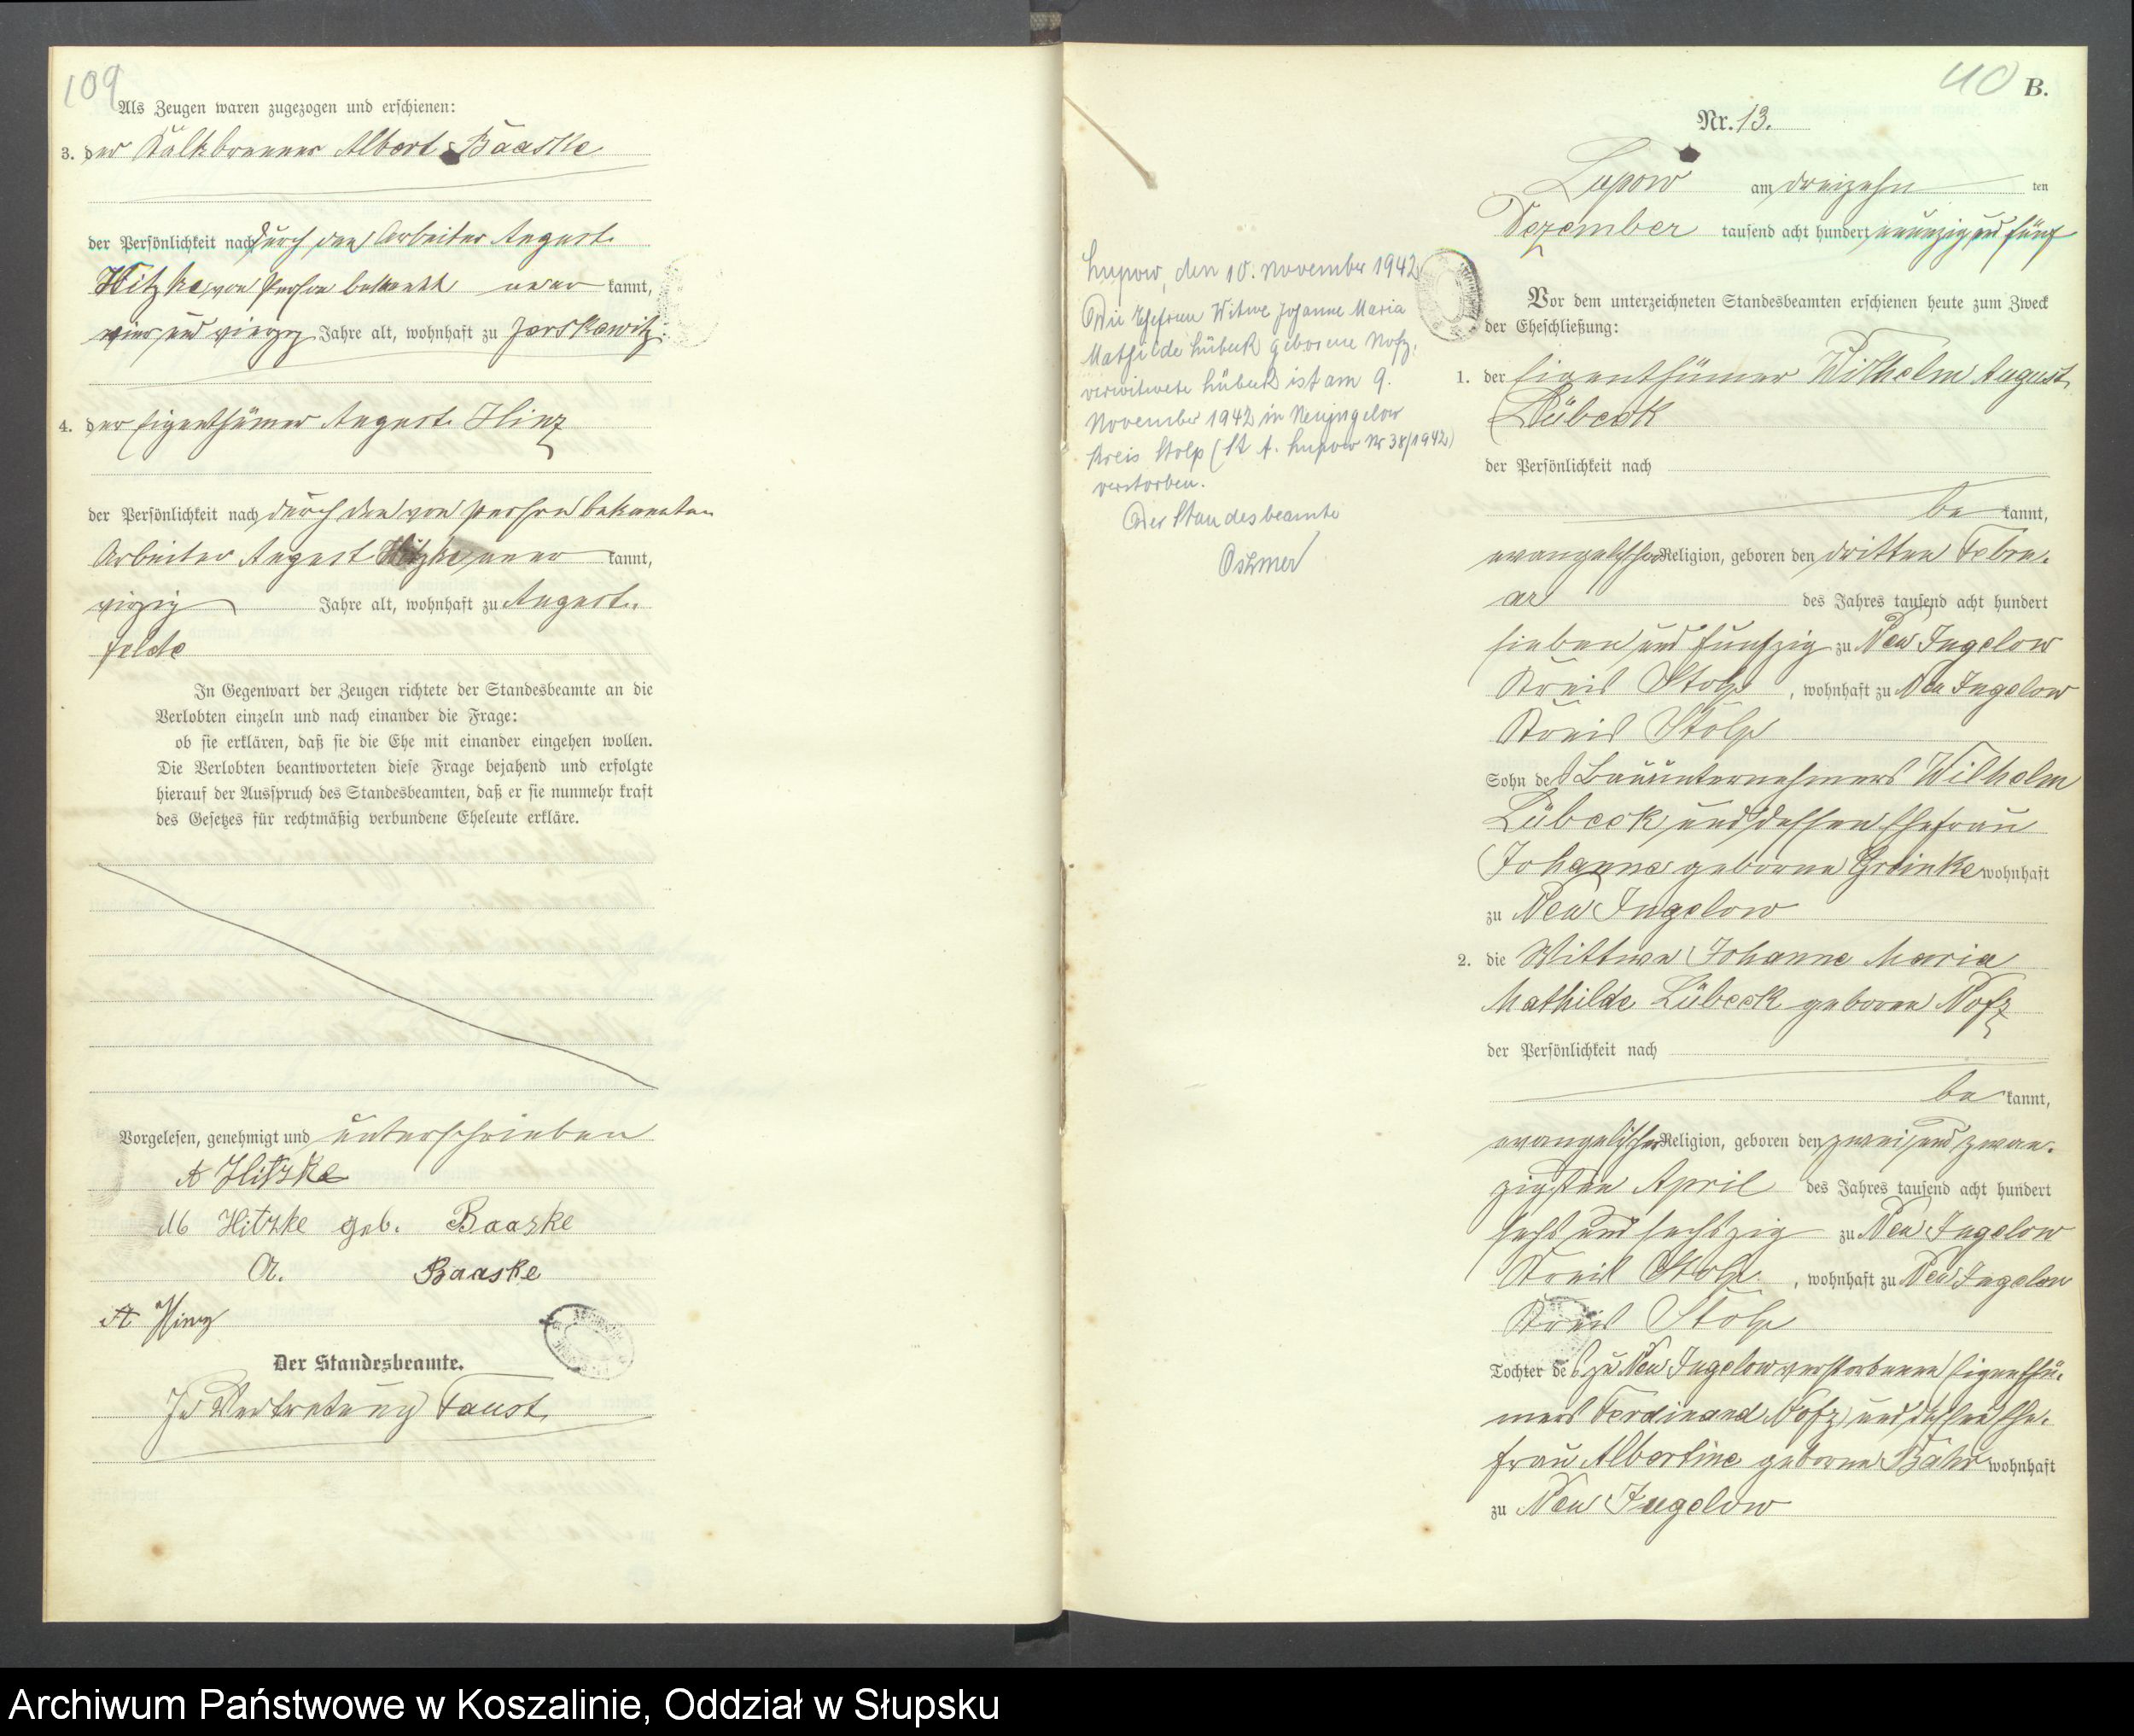 109
Als Zeugen waren zugezogen und erschienen:
3. der Kalkbrenner Albert Baaske
der Persönlichkeit nach durch den Arbeiter August
Hitzke, von Person bekannt aner kannt,
vier und vierzig Jahre alt, wohnhaft zu Jerskewitz
4. der Eigenthümer August Hinz
der Persönlichkeit nach durch den von Person bekannten
Arbeiter August Hitzke, aner kannt,
vierzig Jahre alt, wohnhaft zu August-
felde
In Gegenwart der Zeugen richtete der Standesbeamte an die
Verlobten einzeln und nach einander die Frage:
ob sie erklären, daß sie die Ehe mit einander eingehen wollen.
Die Verlobten beantworteten diese Frage bejahend und erfolgte
hierauf der Ausspruch des Standesbeamten, daß er sie nunmehr kraft
des Gesetzes für rechtmäßig verbundene Eheleute erkläre.
Vorgelesen, genehmigt und unterschrieben
A Hitzke
M Hitzke geb. Baaske
A. Baaske
A Hinz
Der Standesbeamte.
In Vertretung Faust
40 B.
Nr. 13.
Lupow am dreizehn ten
Dezember tausend acht hundert neunzig und fünf
Vor dem unterzeichneten Standesbeamten erschienen heute zum Zweck
der Eheschließung:
1. der Eigenthümer Wilhelm August
Lübeck
der Persönlichkeit nach
be kannt,
evangelischer Religion, geboren den dritten Febru-
ar des Jahres tausend acht hundert
sieben und funfzig zu Neu Jugelow
Kreis Stolp, wohnhaft zu Neu Jugelow
Kreis Stolp
Sohn des Bauunternehmers Wilhelm
Lübeck und dessen Ehefrau
Johanne geborne Greinke wohnhaft
zu Neu Jugelow
2. die Wittwe Johanne Maria
Mathilde Lübeck geborne Nofz
der Persönlichkeit nach
be kannt,
evangelischer Religion, geboren den zwei und zwan-
zigsten April des Jahres tausend acht hundert
sechs und sechszig zu Neu Jugelow
Kreis Stolp, wohnhaft zu Neu Jugelow
Kreis Stolp
Tochter des zu Neu Jugelow verstorbenen Eigenthü-
mers Ferdinand Nofz und dessen Ehe-
frau Albertine geborne Bahr wohnhaft
zu Neu Jugelow
Lupow, den 10. November 1942
Die Ehefrau Witwe Johanne Maria
Mathilde Lübeck geborene Nofz,
verwitwete Lübeck ist am 9.
November 1942 in Neujugelow
Kreis Stolp (St. A. Lupow Nr 38/1942)
verstorben.
Der Standesbeamte
Archiwum Państwowe w Koszalinie, Oddział w Słupsku